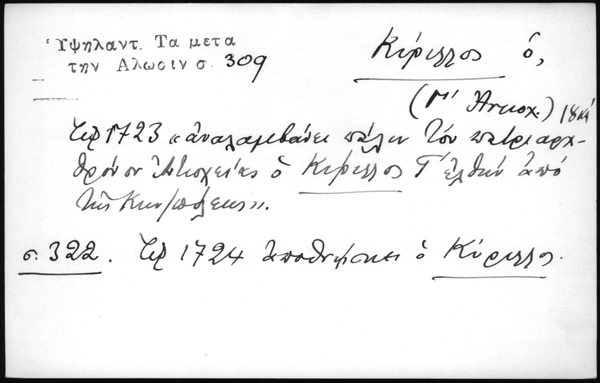 Ὑψηλαντ. Τα μετα
την Αλωσιν σ. 309
Κύριλλος ὁ,
(Γ' Ἀντιοχ.) 18
Τῷ 1723 «ἀναλαμβάνει πάλιν τὸν πατριαρχ-
θρόνον Ἀντιοχείας ὁ Κύριλλος Γ' ἐλθὼν ἀπὸ
τῆς Κων/πόλεως».
σ. 322. Τῷ 1724 ἀποθνήσκει ὁ Κύριλλος.